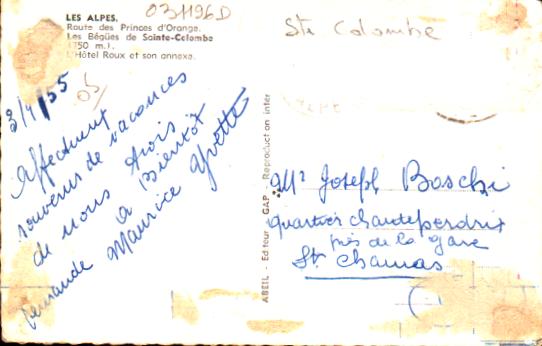 LES ALPES.
Route des Princes d'Orange.
Les Bégües de Sainte-Colombe
(750 m.).
L'Hôtel Roux et son annexe.
031196D
05/
Ste Colombe
3/4/55
Affectueux
souvenirs de vacances
de nous trois
a Bientôt
Fernande Maurice Yvette
ABEIL - Editeur GAP - Reproduction inter
Mr Joseph Boschi
quartier chanteperdrix
près de la gare
St Chamas